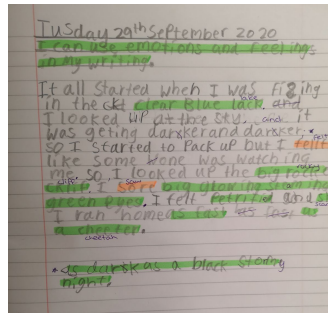 Tusday 29th September 2020
I can use emotions and feelings
in my writing.
It all started when I was fizing
in the clear Blue lack. and
I looked up at the sty. and it
was geting darsker and darsker. *
felt
so I started to Pack up but I fellt
like some one was watching
me. so I looked up the big rocke
cliff. I sore big glowing from the
saw
green eyes. I felt petrified and
I ran home as fast as as
a cheeter.
cheetah
*as darsk as a black stormy
night!